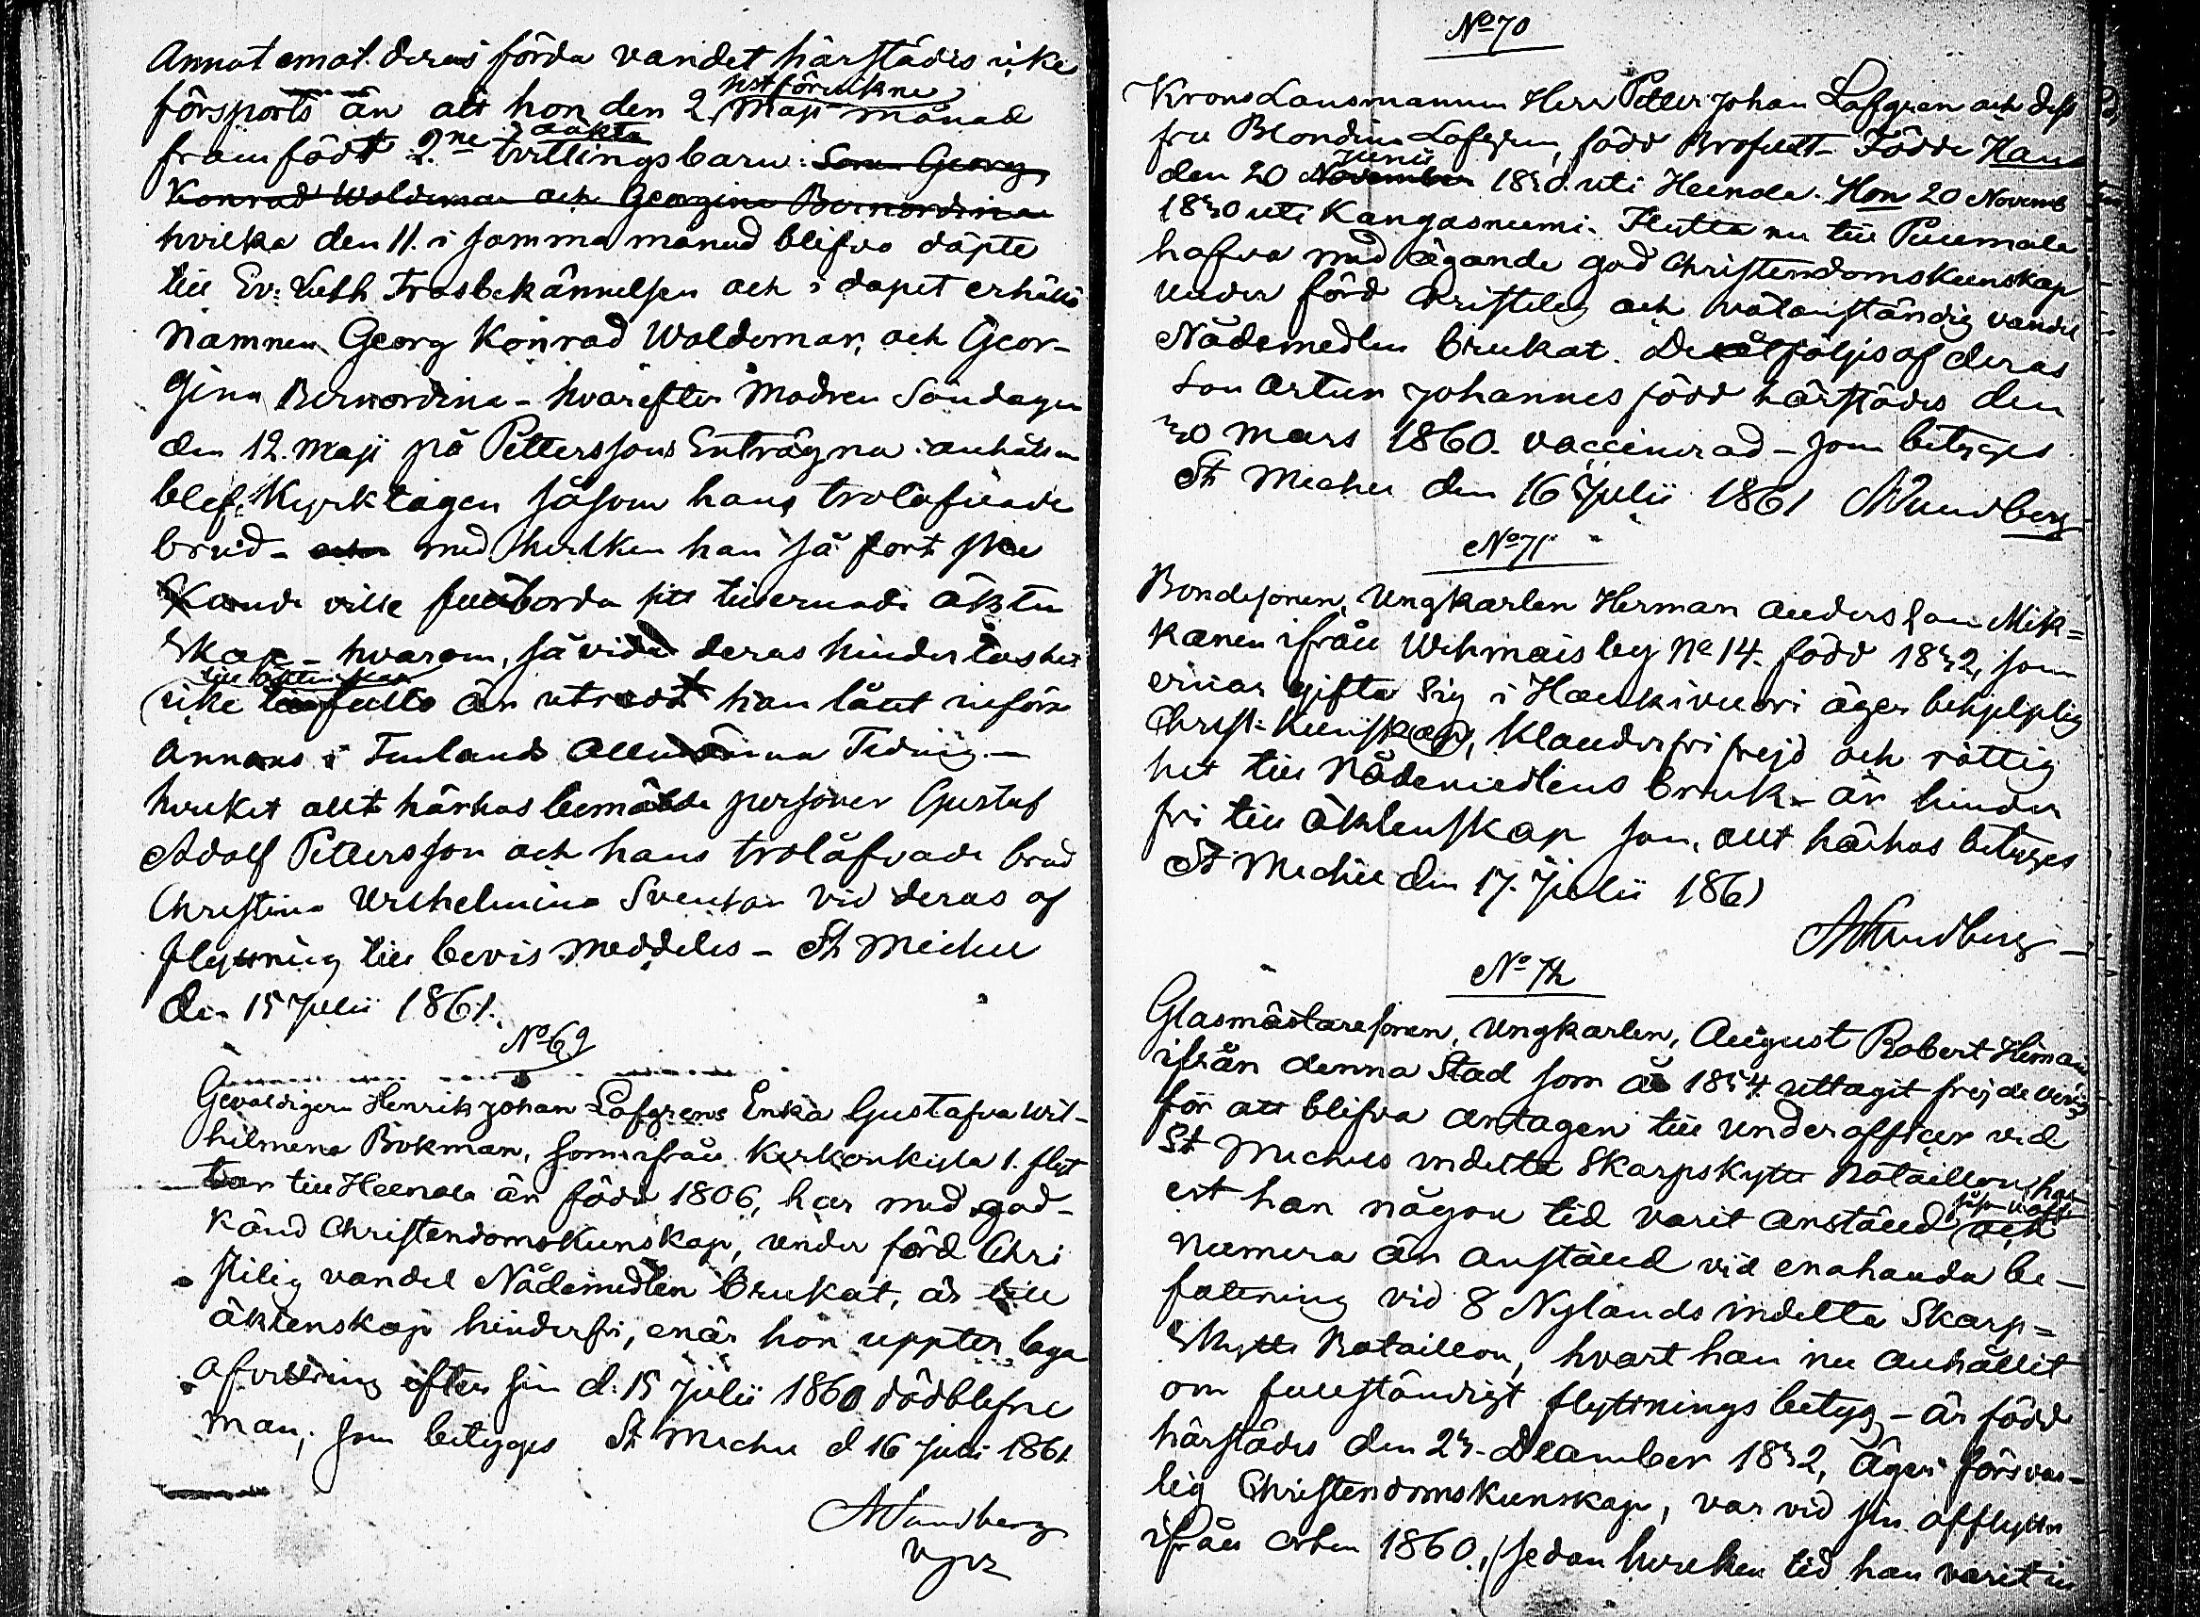 Annat emot deras förda vandel härstädes icke
försports än att hon den 2 Maji sistförvikne månad
framfödt 2.ne oäkta tvillingsbarn: Georg
Konrad Woldemar och Georgina Bernordina
hvilka den 11. i samma månad blifvo döpte
till Ev: Luth Trosbekännelsen och i dopet erhållit
Namnen Georg Konrad Woldemar, och Geor-
gina Bernordina - hvarefter Modren Söndagen
den 12. Maji på Petterssons Enträgna anhållan
blef Kyrktagen såsom hans trolofvade
brud - med hvilken han så fort ske
Kunde ville fullborda sitt tillernade äkten
skap - hvarom, så vida deras hinderlöshet
till äktenskap icke till fullo är utredt han låtit införa
Annons i Finlands Allmänna Tidning. -
hvilket allt härhos bemälde personer Gustaf
Adolf Pettersson och hans trolåfvade brud
Christina Wilhelmina Svensson vid deras af
flyttning till bevis meddelas - St Michel
den 15 Julii 1861.
No 69
Gevaldigern Henrik Johan Lofgrens Enka Gustafva Wil-
helmina Bokman, som ifrån Kirkonkylä 1. flyt
tar till Heinola är född 1806, har med god-
känd Christendomskunskap, under förd Chri
stilig vandel Nådemedlen brukat, är till
äktenskap hinderfri, enär hon uppter laga
afvittring efter sin d. 15 Julii 1860 dödblefne
man; som betygges St Michel d 16 Juli 1861
A Sundberg
No 70
Krono Lansmannen Herr Petter Johan Lofgren och dess
fru Blondina Lofgren, född Brofeldt - Födde Han
den 20 November Junii 1830 uti Heinola. Hon 20 Novemb
1830 uti Kangasniemi. Flytta nu till Puumala
hafva med ägande god Christendomskunskap
under förd Christelig och välanständig vandel
Nådemedlen brukat. De åtföljes af deras
Son Artur Johannes född härstädes den
30 Mars 1860. vaccinerad - som betyges
St Michel den 16 Julii 1861 A Sundberg
No 71
Bondesonen, Ungkarlen Herman Andersson Mik=
kanen ifrån Wehmais by No 14. född 1832, som
ernar gifta sig i Haukivuori äger behjelplig
Christ: Kunskap, Klanderfri frejd och rättig
het till Nådemedlens bruk - är hinder
fri till äktenskap som, allt härhos betyges
St Michel den 17. Julii 1861
A Sundberg -
No 72
Glasmästaresonen, Ungkarlen, August Robert Himan
ifrån denna Stad som år 1854 uttagit frejdebevis
för att blifva antagen till Underofficer vid
St Michels indelta Skarpskytte Bataillon har
est han någon tid varit anställd och
Numera är anställd vid enahanda be-
fattning vid 8 Nylands indelta Skarp=
Skytte Bataillon, hvart han nu anhållit
om fullständigt flyttningsbetyg - är född
härstädes den 23. December 1832, Äger försvar-
lig Christendomskunskap, var vid sin afflyttn
ifrån orten 1860, (sedan hvilken tid han varit in